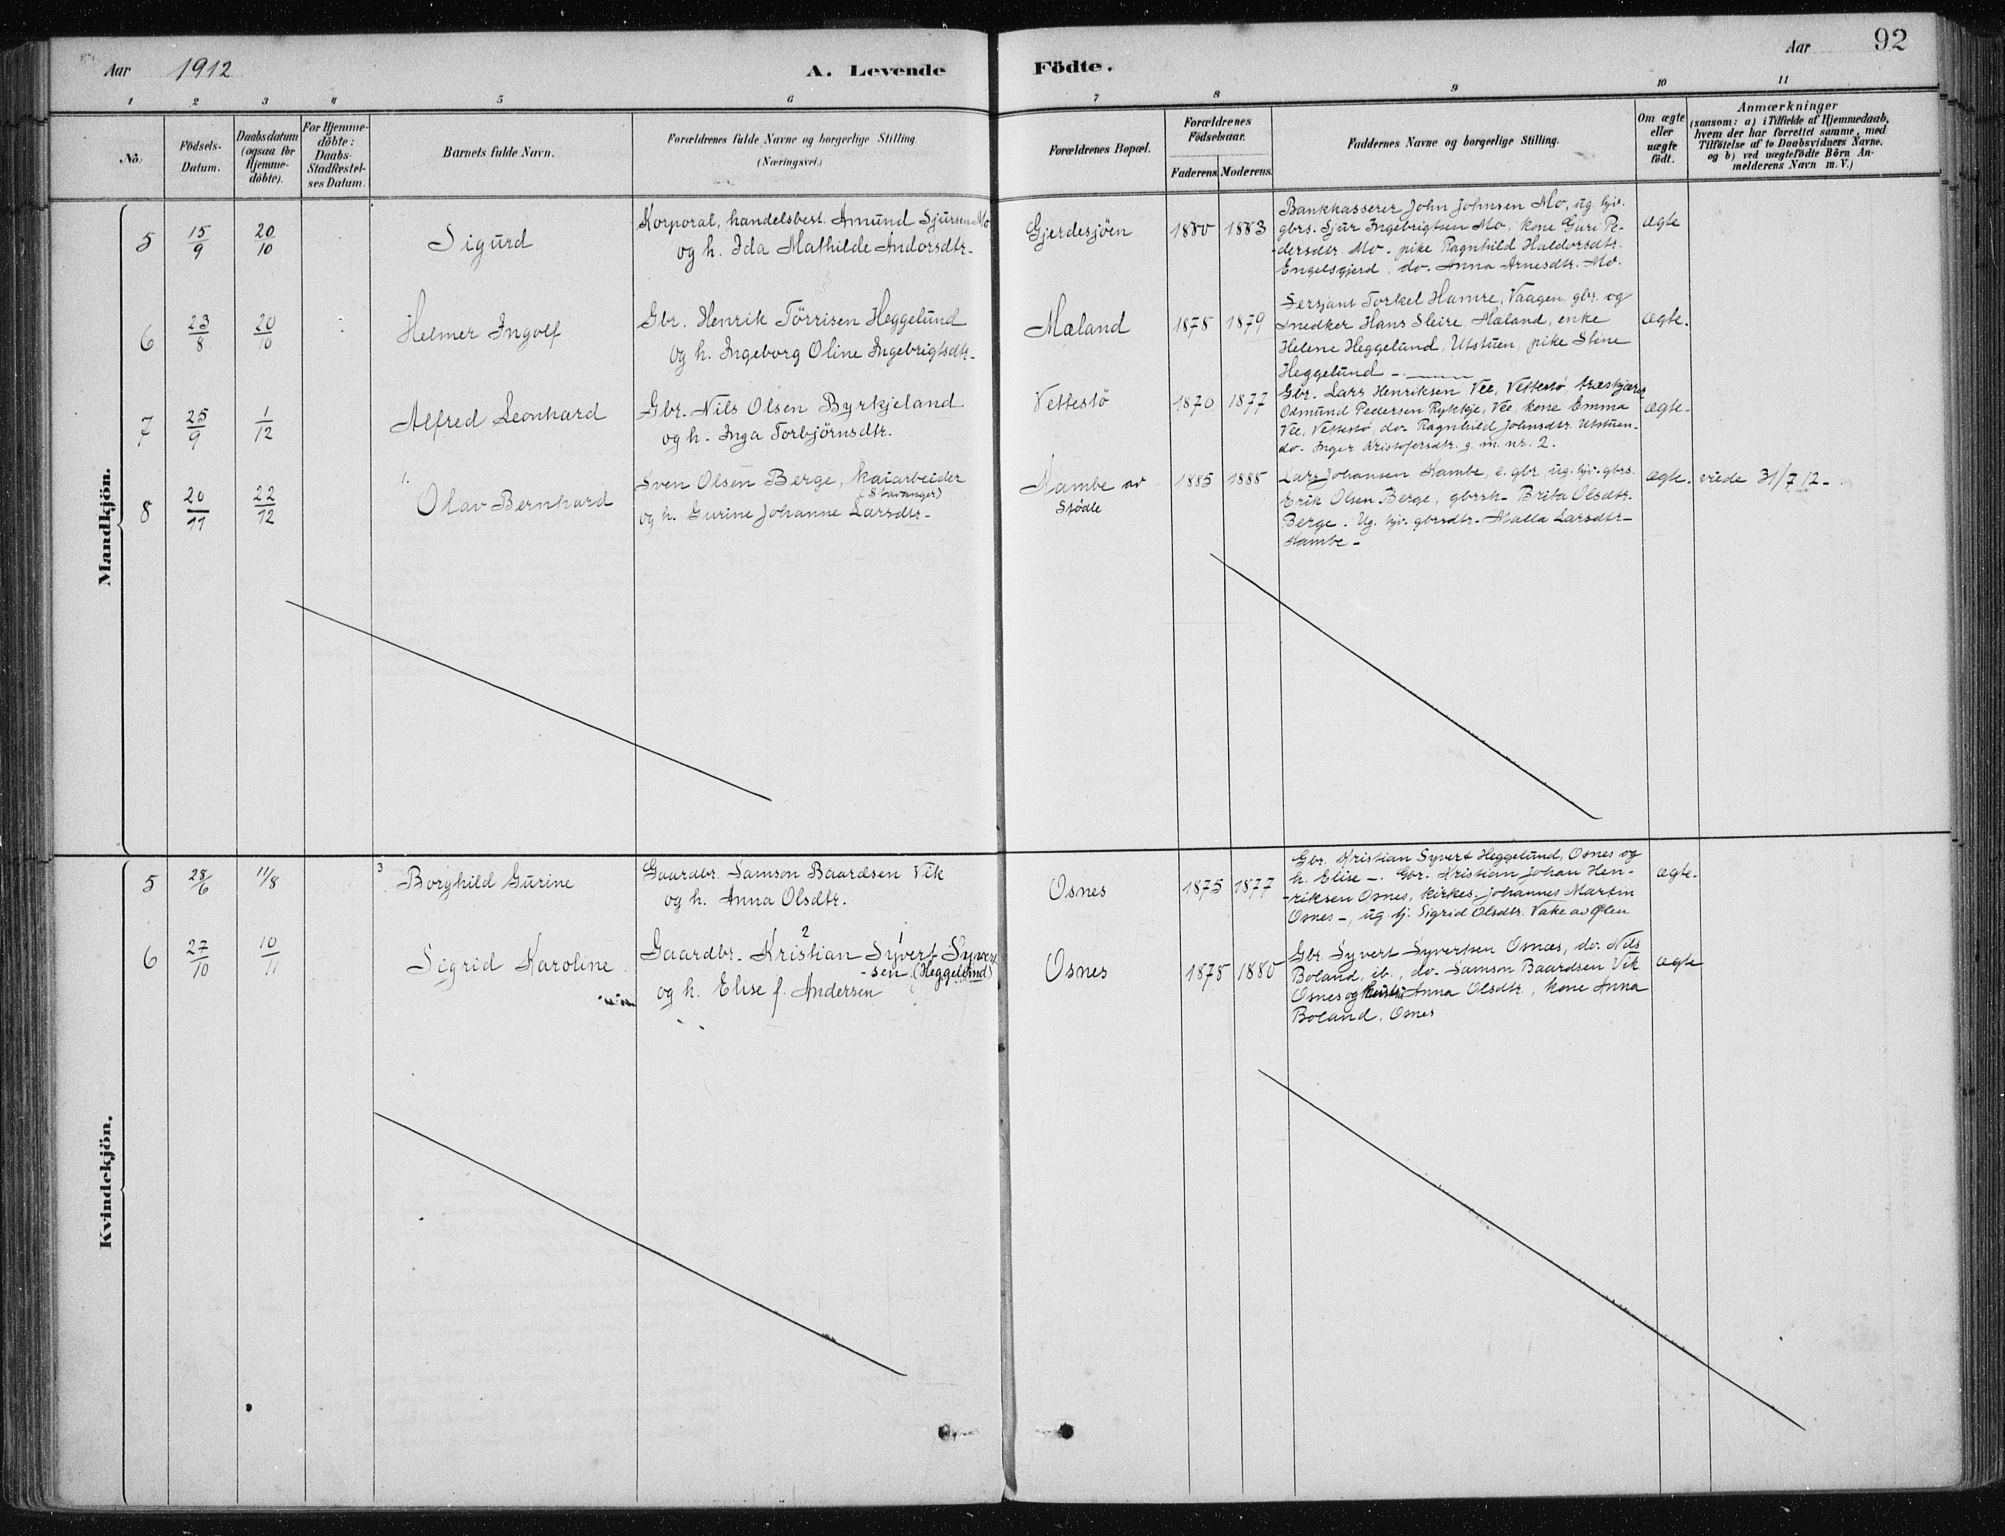 Aar 1912
A. Levende Födte.
Aar 92
1 2 3 4 5 6 7 8 9 10 11
No.
Födsels-
Datum.
Daabsdatum
(ogsaa for
Hjemme-
döbte).
For Hjemme-
döbte:
Daabs-
Stadfæstel-
ses Datum.
Barnets fulde Navn.
Forældrenes fulde Navne og borgerlige Stilling
(Næringsvei.)
Forældrenes Bopæl.
Forældrenes
Födselsaar.
Faderens. Moderens.
Faddernes Navne og borgerlige Stilling.
Om ægte
eller
uægte
födt.
Anmærkninger
(saasom: a) i Tilfælde af Hjemmedaab,
hvem der har forrettet samme, med
Tilföielse af to Daabsvidners Navne,
og b) ved uægtefödte Börn An-
melderens Navn m. V.)
Mandkjön.
5 15/9 20/10
Sigurd
Korporal, handelsbest. Amund Sjursen Mo
og h. Ida Mathilde Andorsdtr.
Gjerdesjöen
1880 1883
Bankkasserer John Johnsen Mo, ug. hjv.
gbrs. Sjur Ingebrigtsen Mo, kone Guri Pe-
dersdtr. Mo. pike Ragnhild Haldorsdtr.
Engelsgjerd, do. Anna Arnesdtr. Mo.
ægte
6 23/8 20/10
Helmer Ingolf
Gbr. Henrik Törrisen Heggelund
og h. Ingeborg Oline Ingebrigtsdtr.
Mæland
1878 1879
Sersjant Torkel Hamre, Vaagen, gbr. og
snedker Hans Sleire, Mæland, enke
Helene Heggelund, Utstuen, pike Stine
Heggelund -
ægte.
7 25/9 1/12
Alfred Leonhard
Gbr. Nils Olsen Byrkjeland
og h. Inga Torbjörnsdtr.
Vettestö
1870 1877
Gbr. Lars Henriksen Vee, Vettestö træskjærer
Odmund Pedersen Rykkje, Vee, kone Emma
Vee, Vettestö, do. Ragnhild Johnsdtr. Utstuen-
do. Inger Kristofersdtr. g. m. nr. 2.
ægte-
8 20/11 22/12
1. Olav Bernhard
Sven Olsen Berge, kaiarbeider
(Stavanger)
og h. Gurine Johanne Larsdtr-
Kambe av
Stödle
1885 1888
Lars Johansen Kambe, e. gbr, ug. hjv. gbrs.
Erik Olsen Berge, gbrsk- Brita Olsdtr.
Berge. Ug. hjv. gbrsdtr. Malla Larsdtr-
Kambe -
ægte. viede 31/7 12-
Kvindekjön.
5 28/6 11/8
3 Borghild Gurine
Gaardbr. Samson Baardsen Vik
og h. Anna Olsdtr.
Osnes
1875 1877
Gbr. Kristian Syvert Heggelund, Osnes og
h. Elise -. Gbr. Kristian Johan Hen-
-riksen Osnes, kirkes. Johannes Martin
Osnes -, ug. hj. Sigrid Olsdtr. Vake av Ølen
ægte.
6 27/10 10/11
Sigrid Karoline
2 1
Gaardbr. Kristian Syvert Syvert-
-sen (Heggelund)
og h. Elise f. Andersen
Osnes
1878 1880
Gbr. Syvert Syvertsen Osnæs, do. Nils
Boland, ib., do. Samson Baardsen Vik
Osnes og Anna Olsdtr., kone Anna
Boland, Osnes
ægte